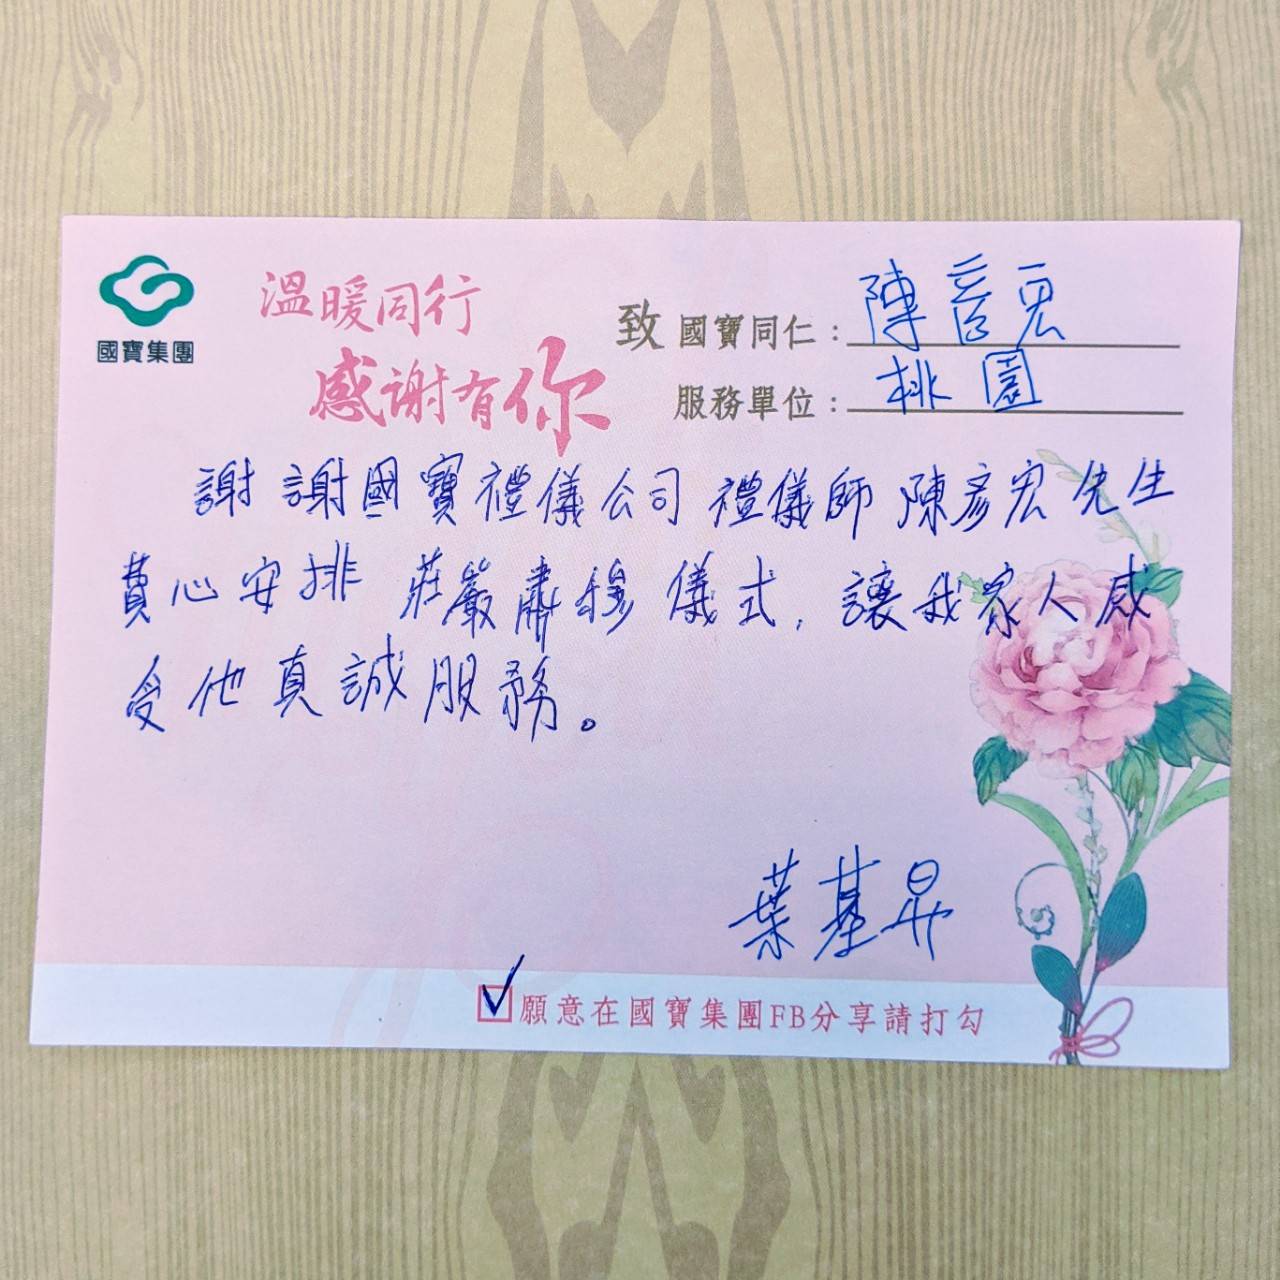 國寶集團
溫暖同行
感謝有你
致 國寶同仁：陳彥宏
服務單位：桃園
謝謝國寶禮儀公司禮儀師陳彥宏先生
費心安排莊嚴肅穆儀式，讓我家人感
受他真誠服務。
葉基昇
願意在國寶集團FB分享請打勾